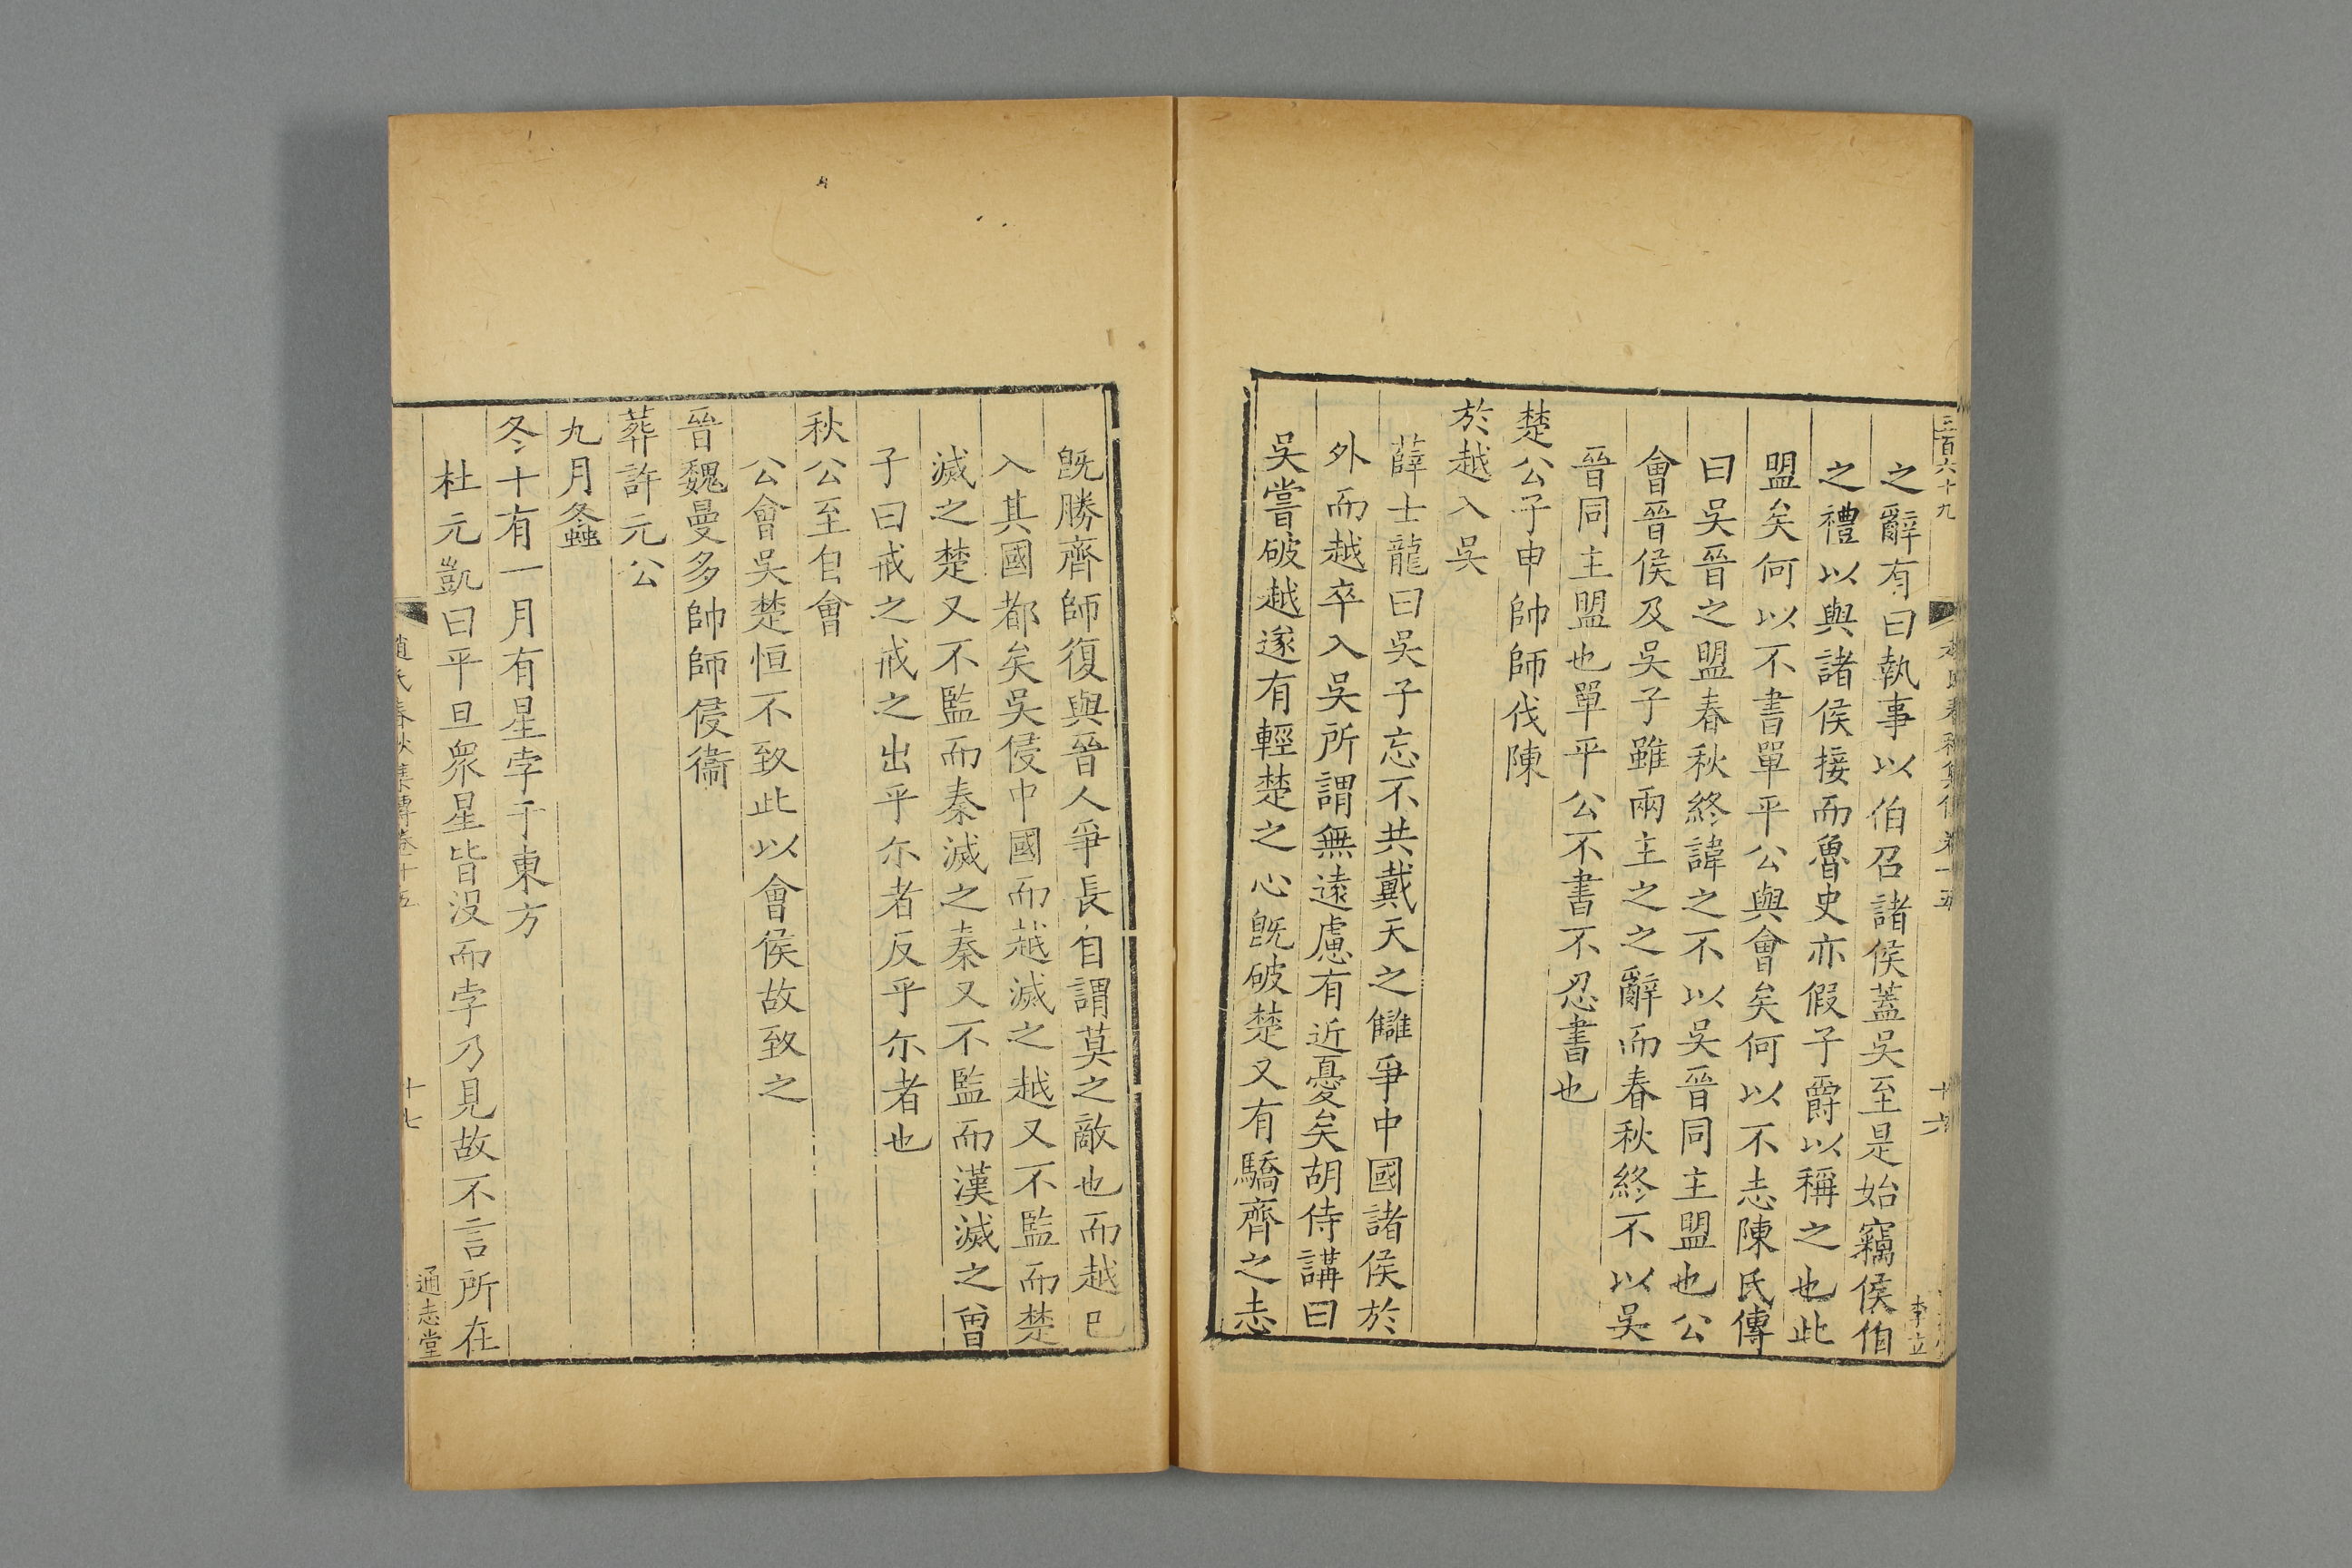 三百六十九
春秋集傳卷十五
十六
李立
之辭有曰執事以伯召諸侯蓋吳至是始竊侯伯
之禮以與諸侯接而魯史亦假子爵以稱之也此
盟矣何以不書單平公與會矣何以不志陳氏傳
曰吳晉之盟春秋終諱之不以吳晉同主盟也公
會晉侯及吳子雖兩主之之辭而春秋終不以吳
晉同主盟也單平公不書不忍書也
楚公子申帥師伐陳
於越入吳
薛士龍曰吳子忘不共戴天之讎爭中國諸侯於
外而越卒入吳所謂無遠慮有近憂矣胡侍講曰
吳嘗破越遂有輕楚之心旣破楚又有驕齊之志
旣勝齊師復與晉人爭長自謂莫之敵也而越已
入其國都矣吳侵中國而越滅之越又不監而楚
滅之楚又不監而秦滅之秦又不監而漢滅之曾
子曰戒之戒之出乎尔者反乎尔者也
秋公至自會
公會吳楚恒不致此以會侯故致之
晉魏曼多帥師侵衞
葬許元公
九月螽
冬十有一月有星孛于東方
杜元凱曰平旦衆星皆沒而孛乃見故不言所在
趙氏春秋集傳卷十五
十七
通志堂